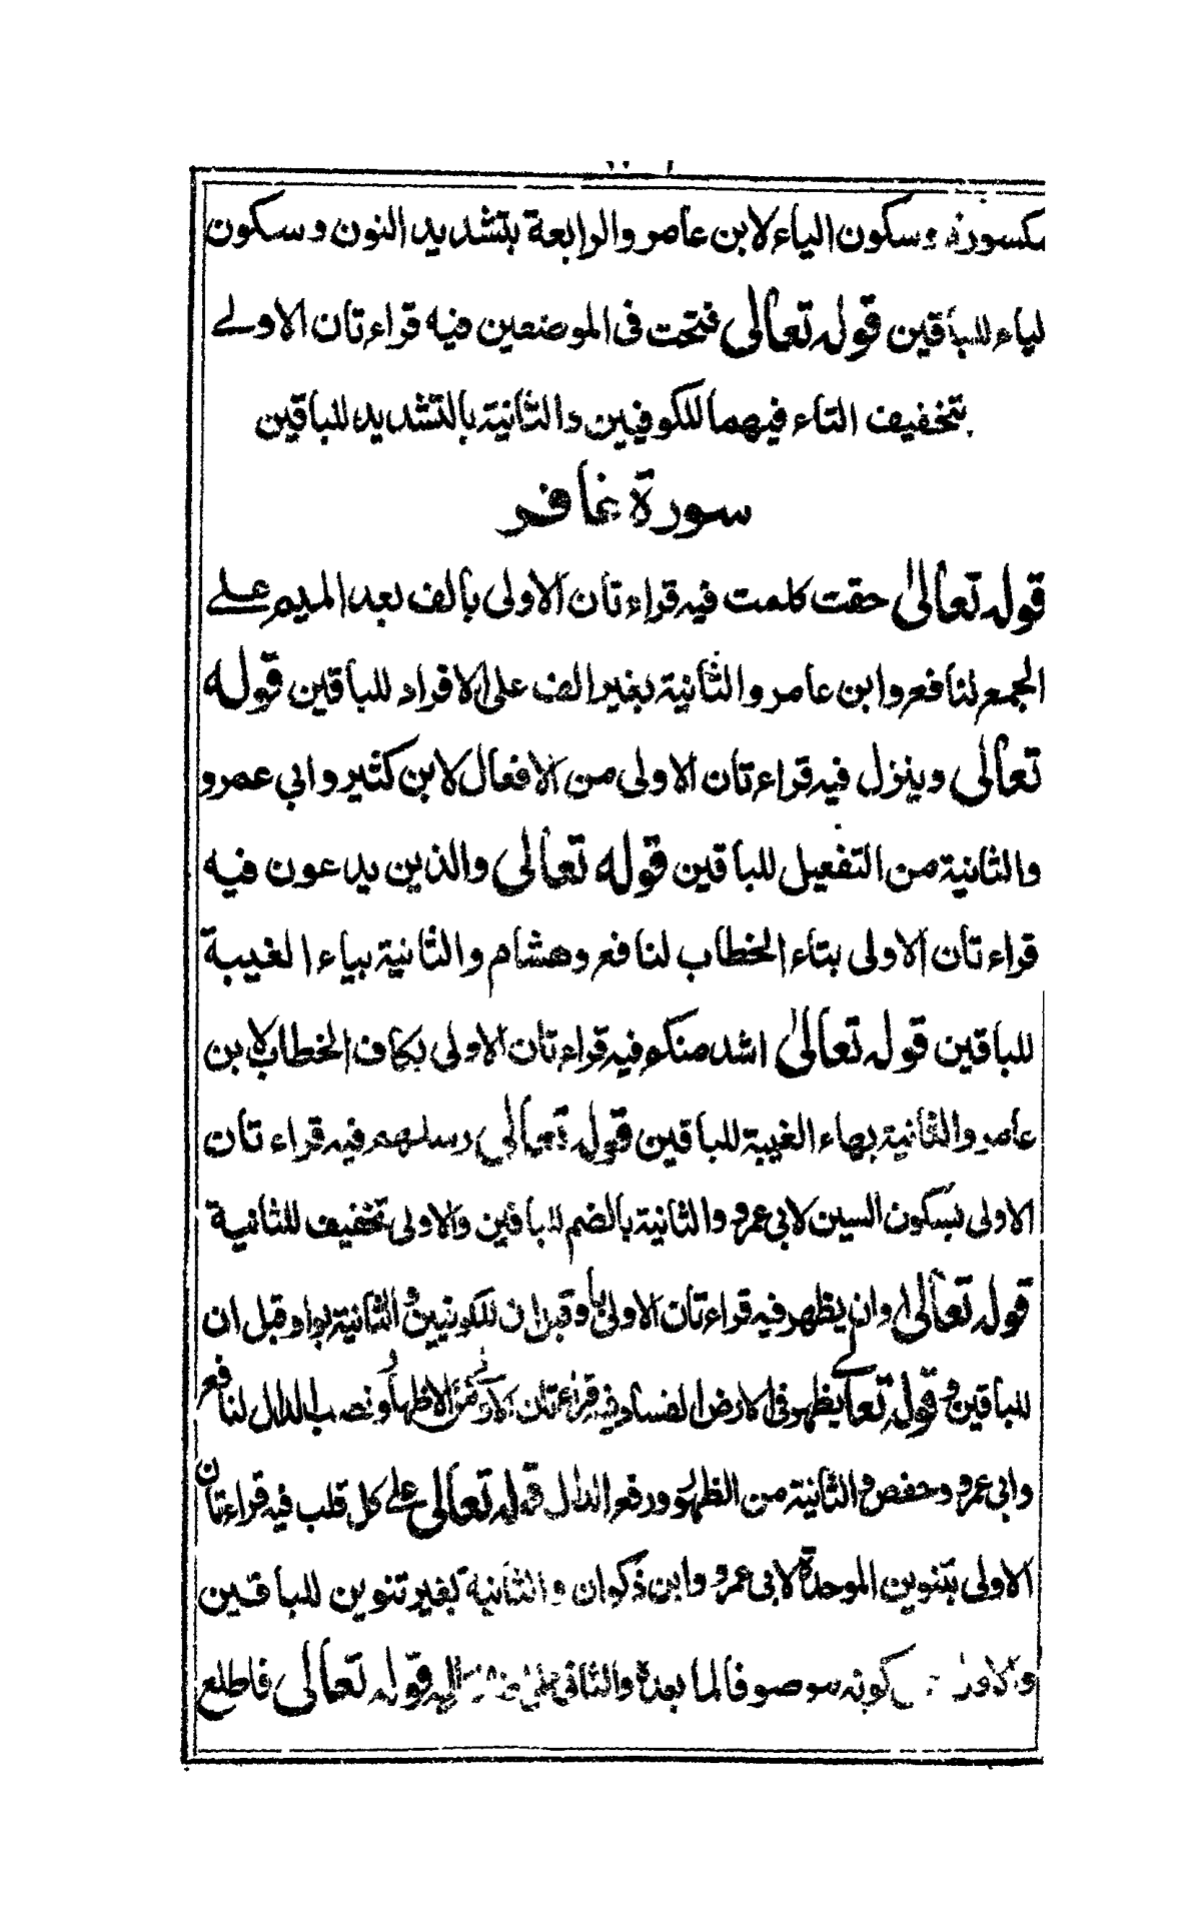 مكسورة وسكون الياء لابن عامر والرابعة بتشديد النون وسكون
لياء للباقين قوله تعالى فتحت فى الموضعين فيه قراءتان الاولے
بتخفيف التاء فيهما للكوفيين والثانية بالتشديد للباقين
سورة غافر
قوله تعالىٰ حقت كلمت فيه قراءتان الاولى بالف بعد الميم علے
الجمع لنافع وابن عامر والثانية بغير الف على الافراد للباقين قوله
تعالى وينزل فيه قراءتان الاولى من الافعال لابن كثير وابي عمرو
والثانية من التفعيل للباقين قوله تعالى والذين يدعون فيه
قراءتان الاولى بتاء الخطاب لنافع وهشام والثانية بياء الغيبة
للباقين قوله تعالىٰ اشد منكم فيه قراءتان الاولى بكاف الخطاب لابن
عامر والثانية بهاء الغيبة للباقين قوله تعالى رسلهم فيه قراءتان
الاولى بسكون السين لابي عمرو والثانية بالضم للباقين والاولى تخفيف للثانية
قوله تعالىٰ وان يظهر فيه قراءتان الاولى باو قبل ان للكوفيين والثانية بواو قبل ان
للباقين وقوله تعالے يظهر فى الارض الفساد فيه قراءتان الاولى من الاظهار ونصب الدال لنافع
وابي عمرو وحفص والثانية من الظهور ورفع الدال قوله تعالى على كل قلب فيه قراءتان
الاولى بتنوين الموحدة لابي عمرو وابن ذكوان والثانية بغير تنوين للباقين
والاولى كونه موصوفا لما بعده والثاني على اليه قوله تعالى فاطلع